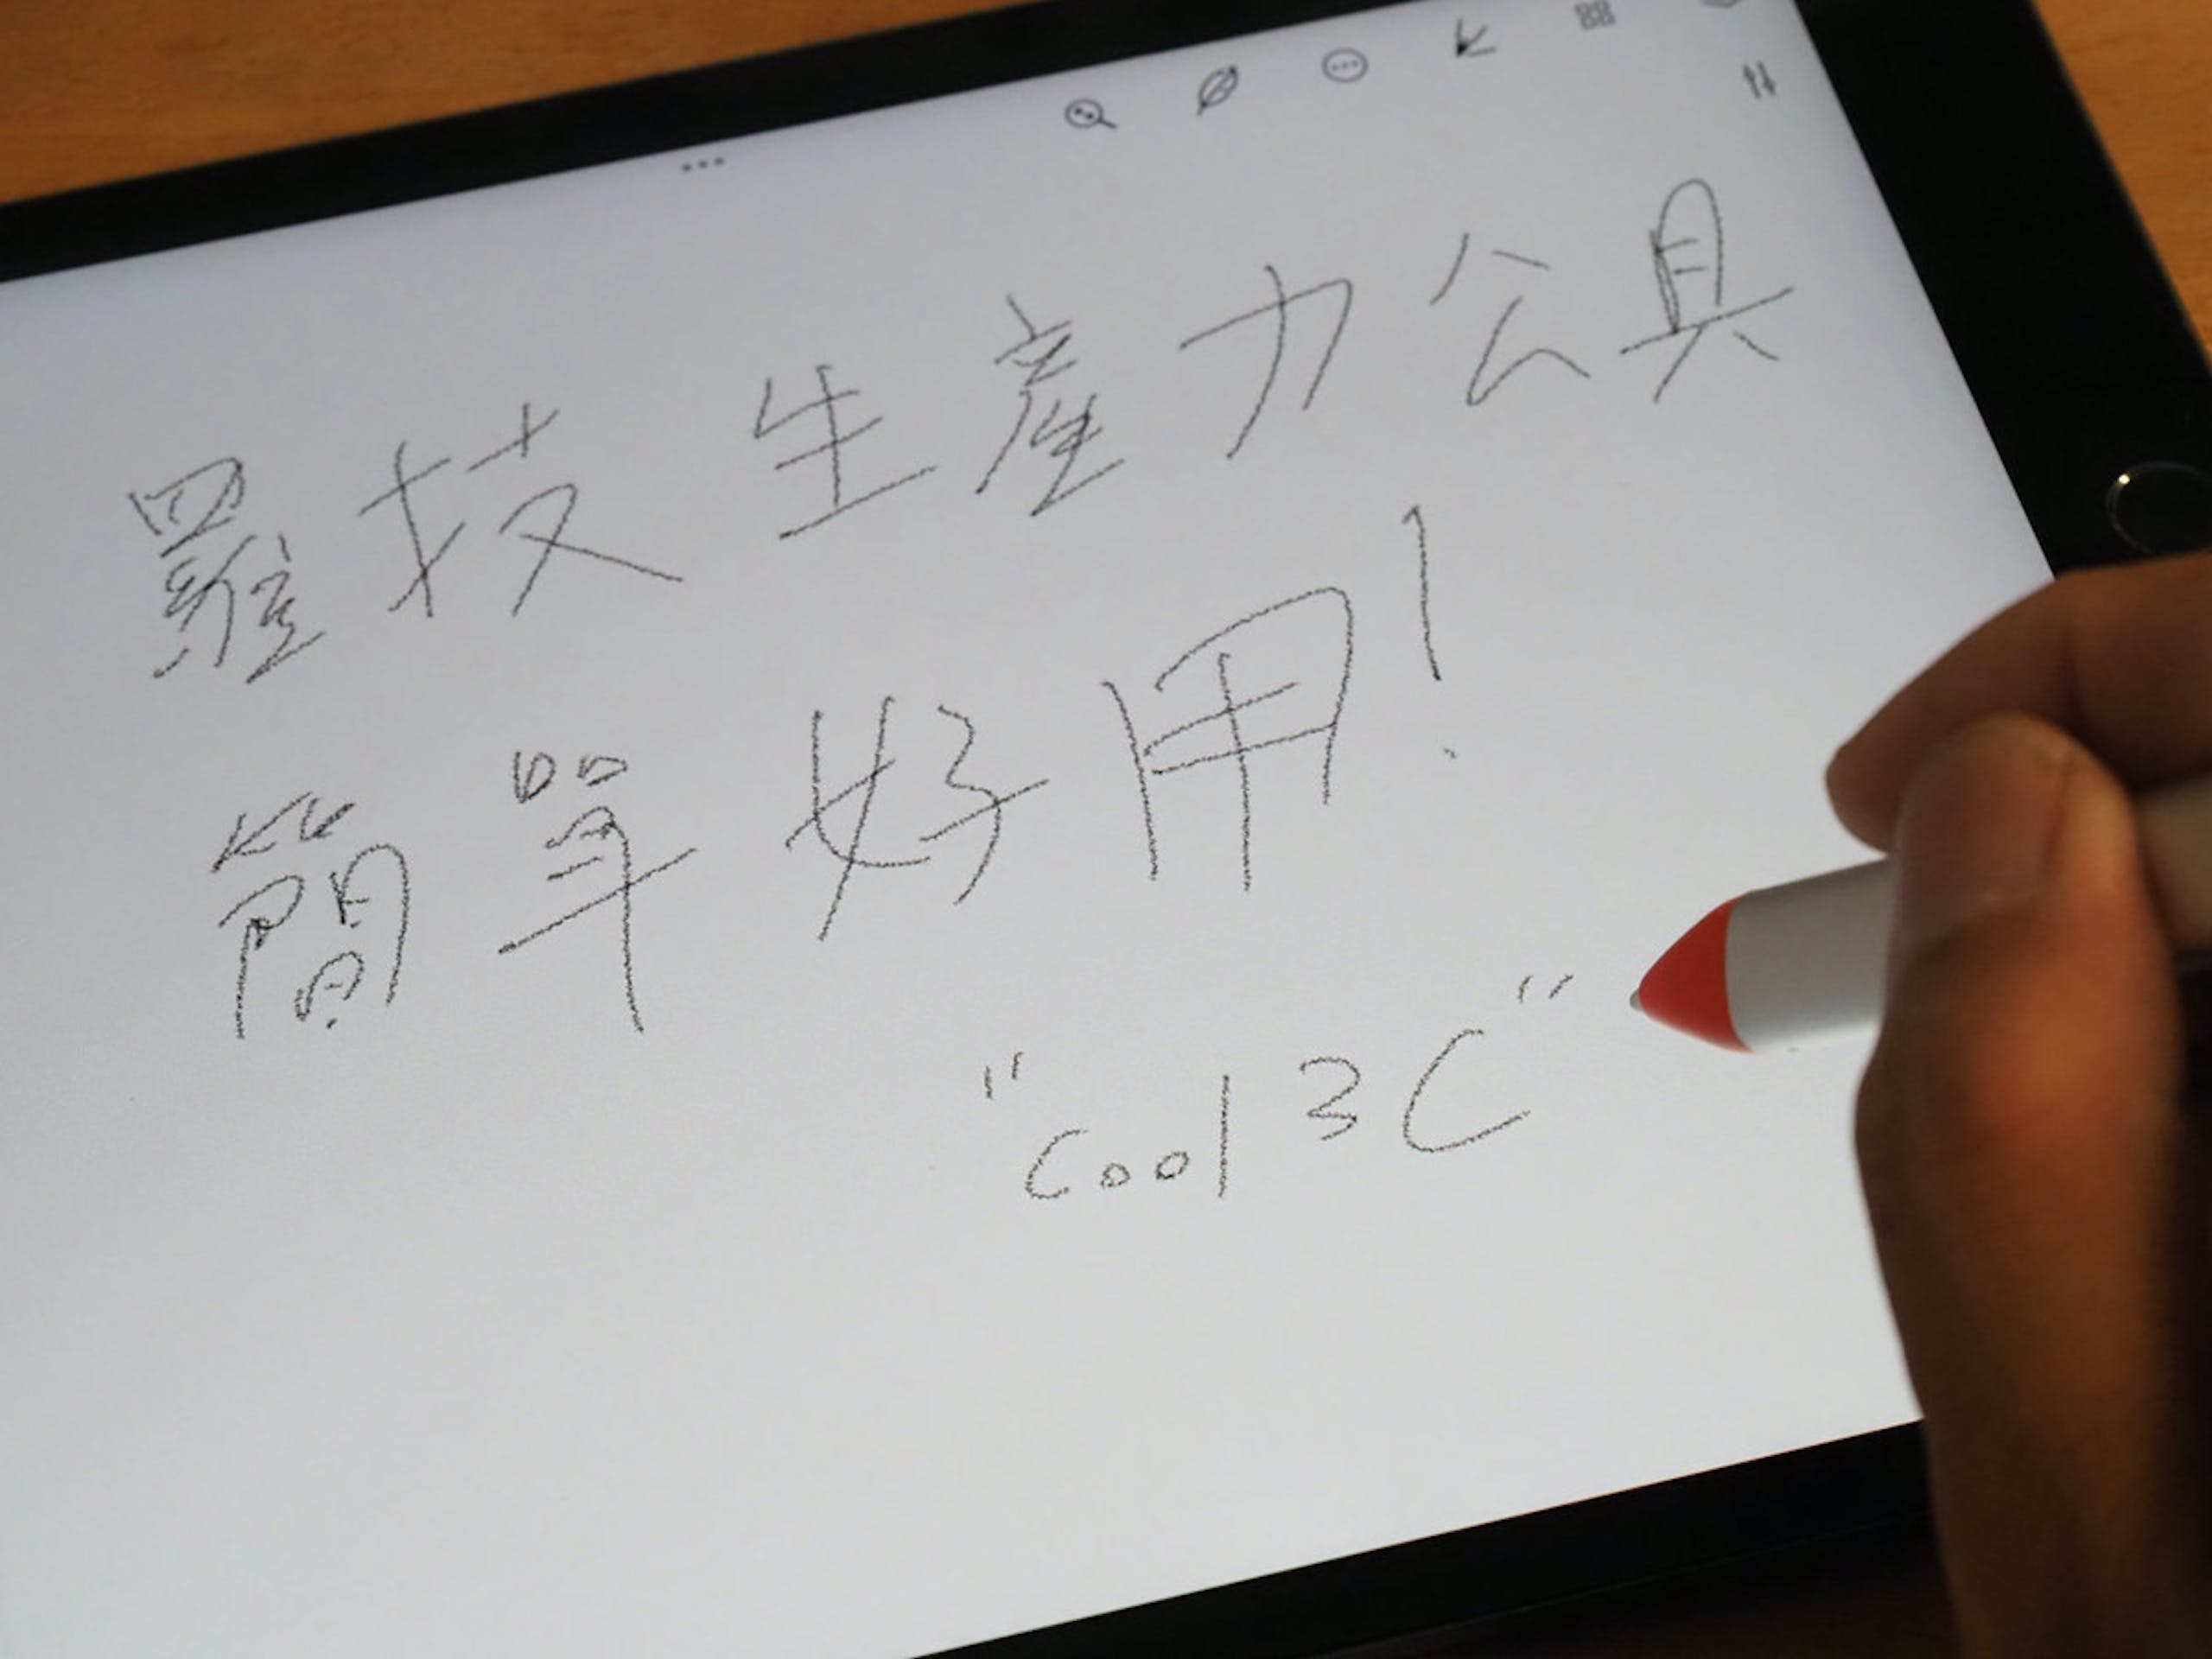 羅技生產力公具
簡單好用!
"Cool 3C"